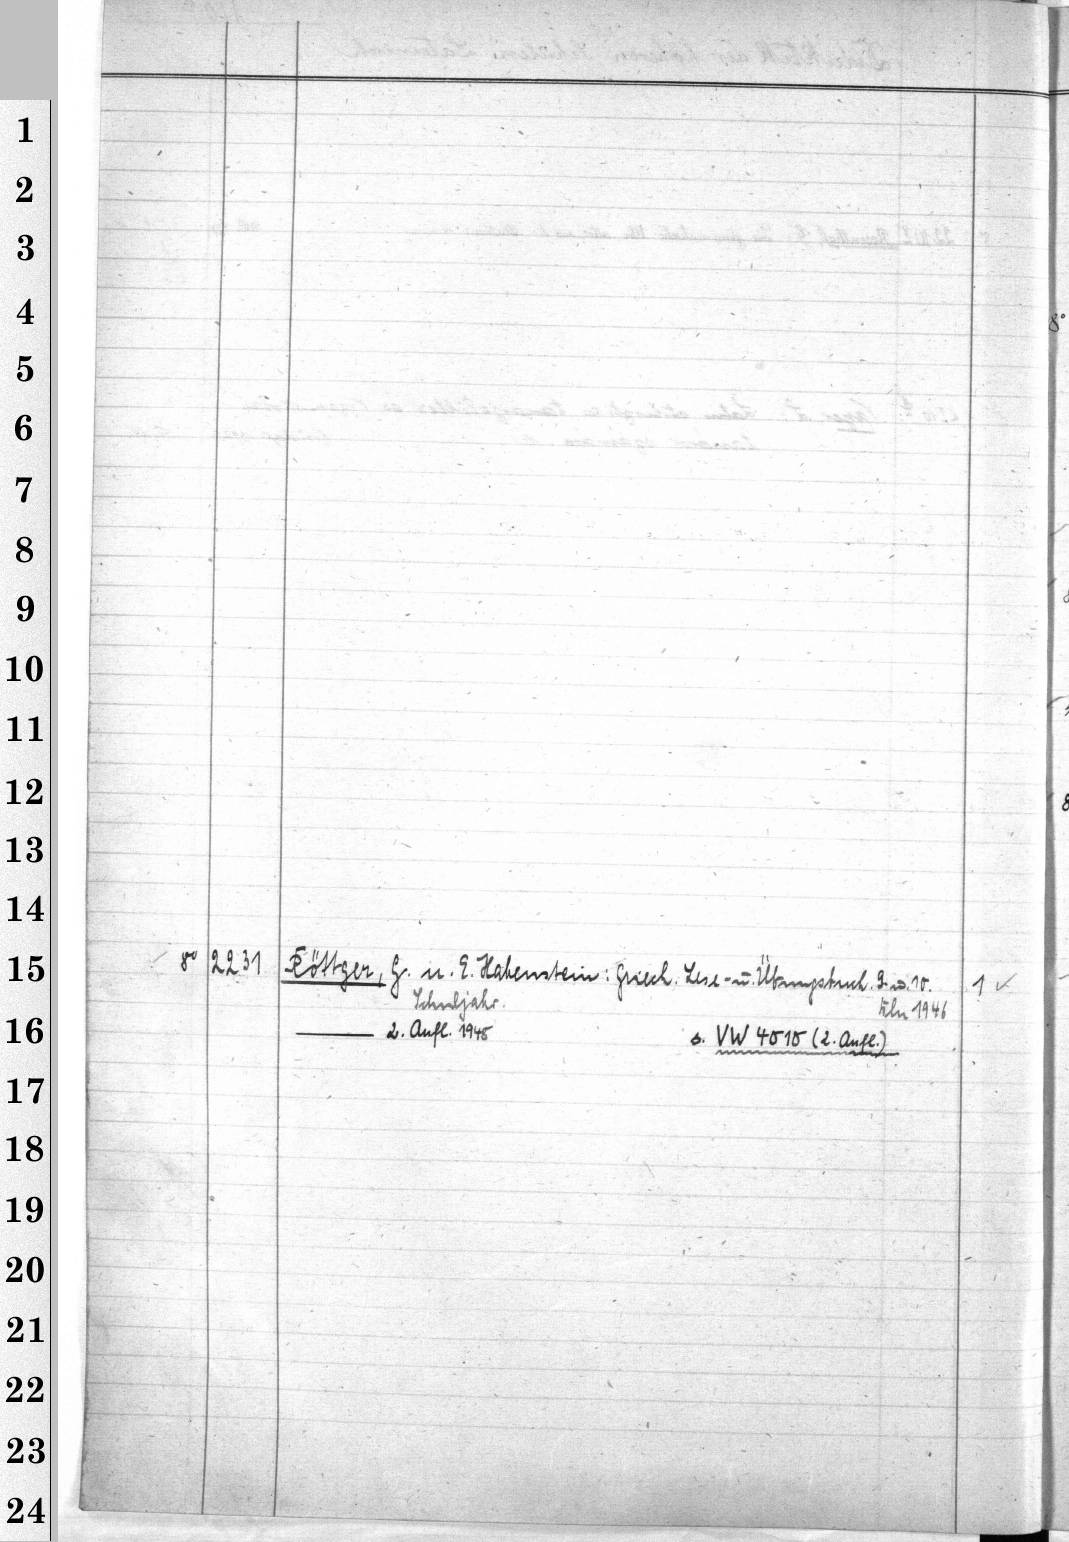 1
2
3
4
5
6
7
8
9
10
11
12
13
14
15
8° 2231 Röttger, G. u. E. Habenstein: Griech. Lese- u. Übungsbuch. 9. u. 10. 1 ✓
Schuljahr. Kln 1946
16
2. Aufl. 1948 s. VW 4010 (2. Aufl.)
17
18
19
20
21
22
23
24